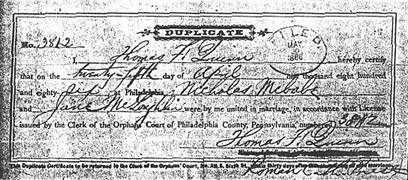 DUPLICATE
FILED
MAY
1886
No. 3812
I, Thomas F. Quinn hereby certify
that on the twenty-fifth day of April one thousand eight hundred
and eighty six at Philadelphia, Nicholas McCabe
and Jane McLoughlin were by me united in marriage, in accordance with License
issued by the Clerk of the Orphans' Court of Philadelphia County, Pennsylvania, numbered 3812
Thomas F. Quinn
This Duplicate Certificate to be returned to the Clerk of the Orphans' Court, No. S. Sixth